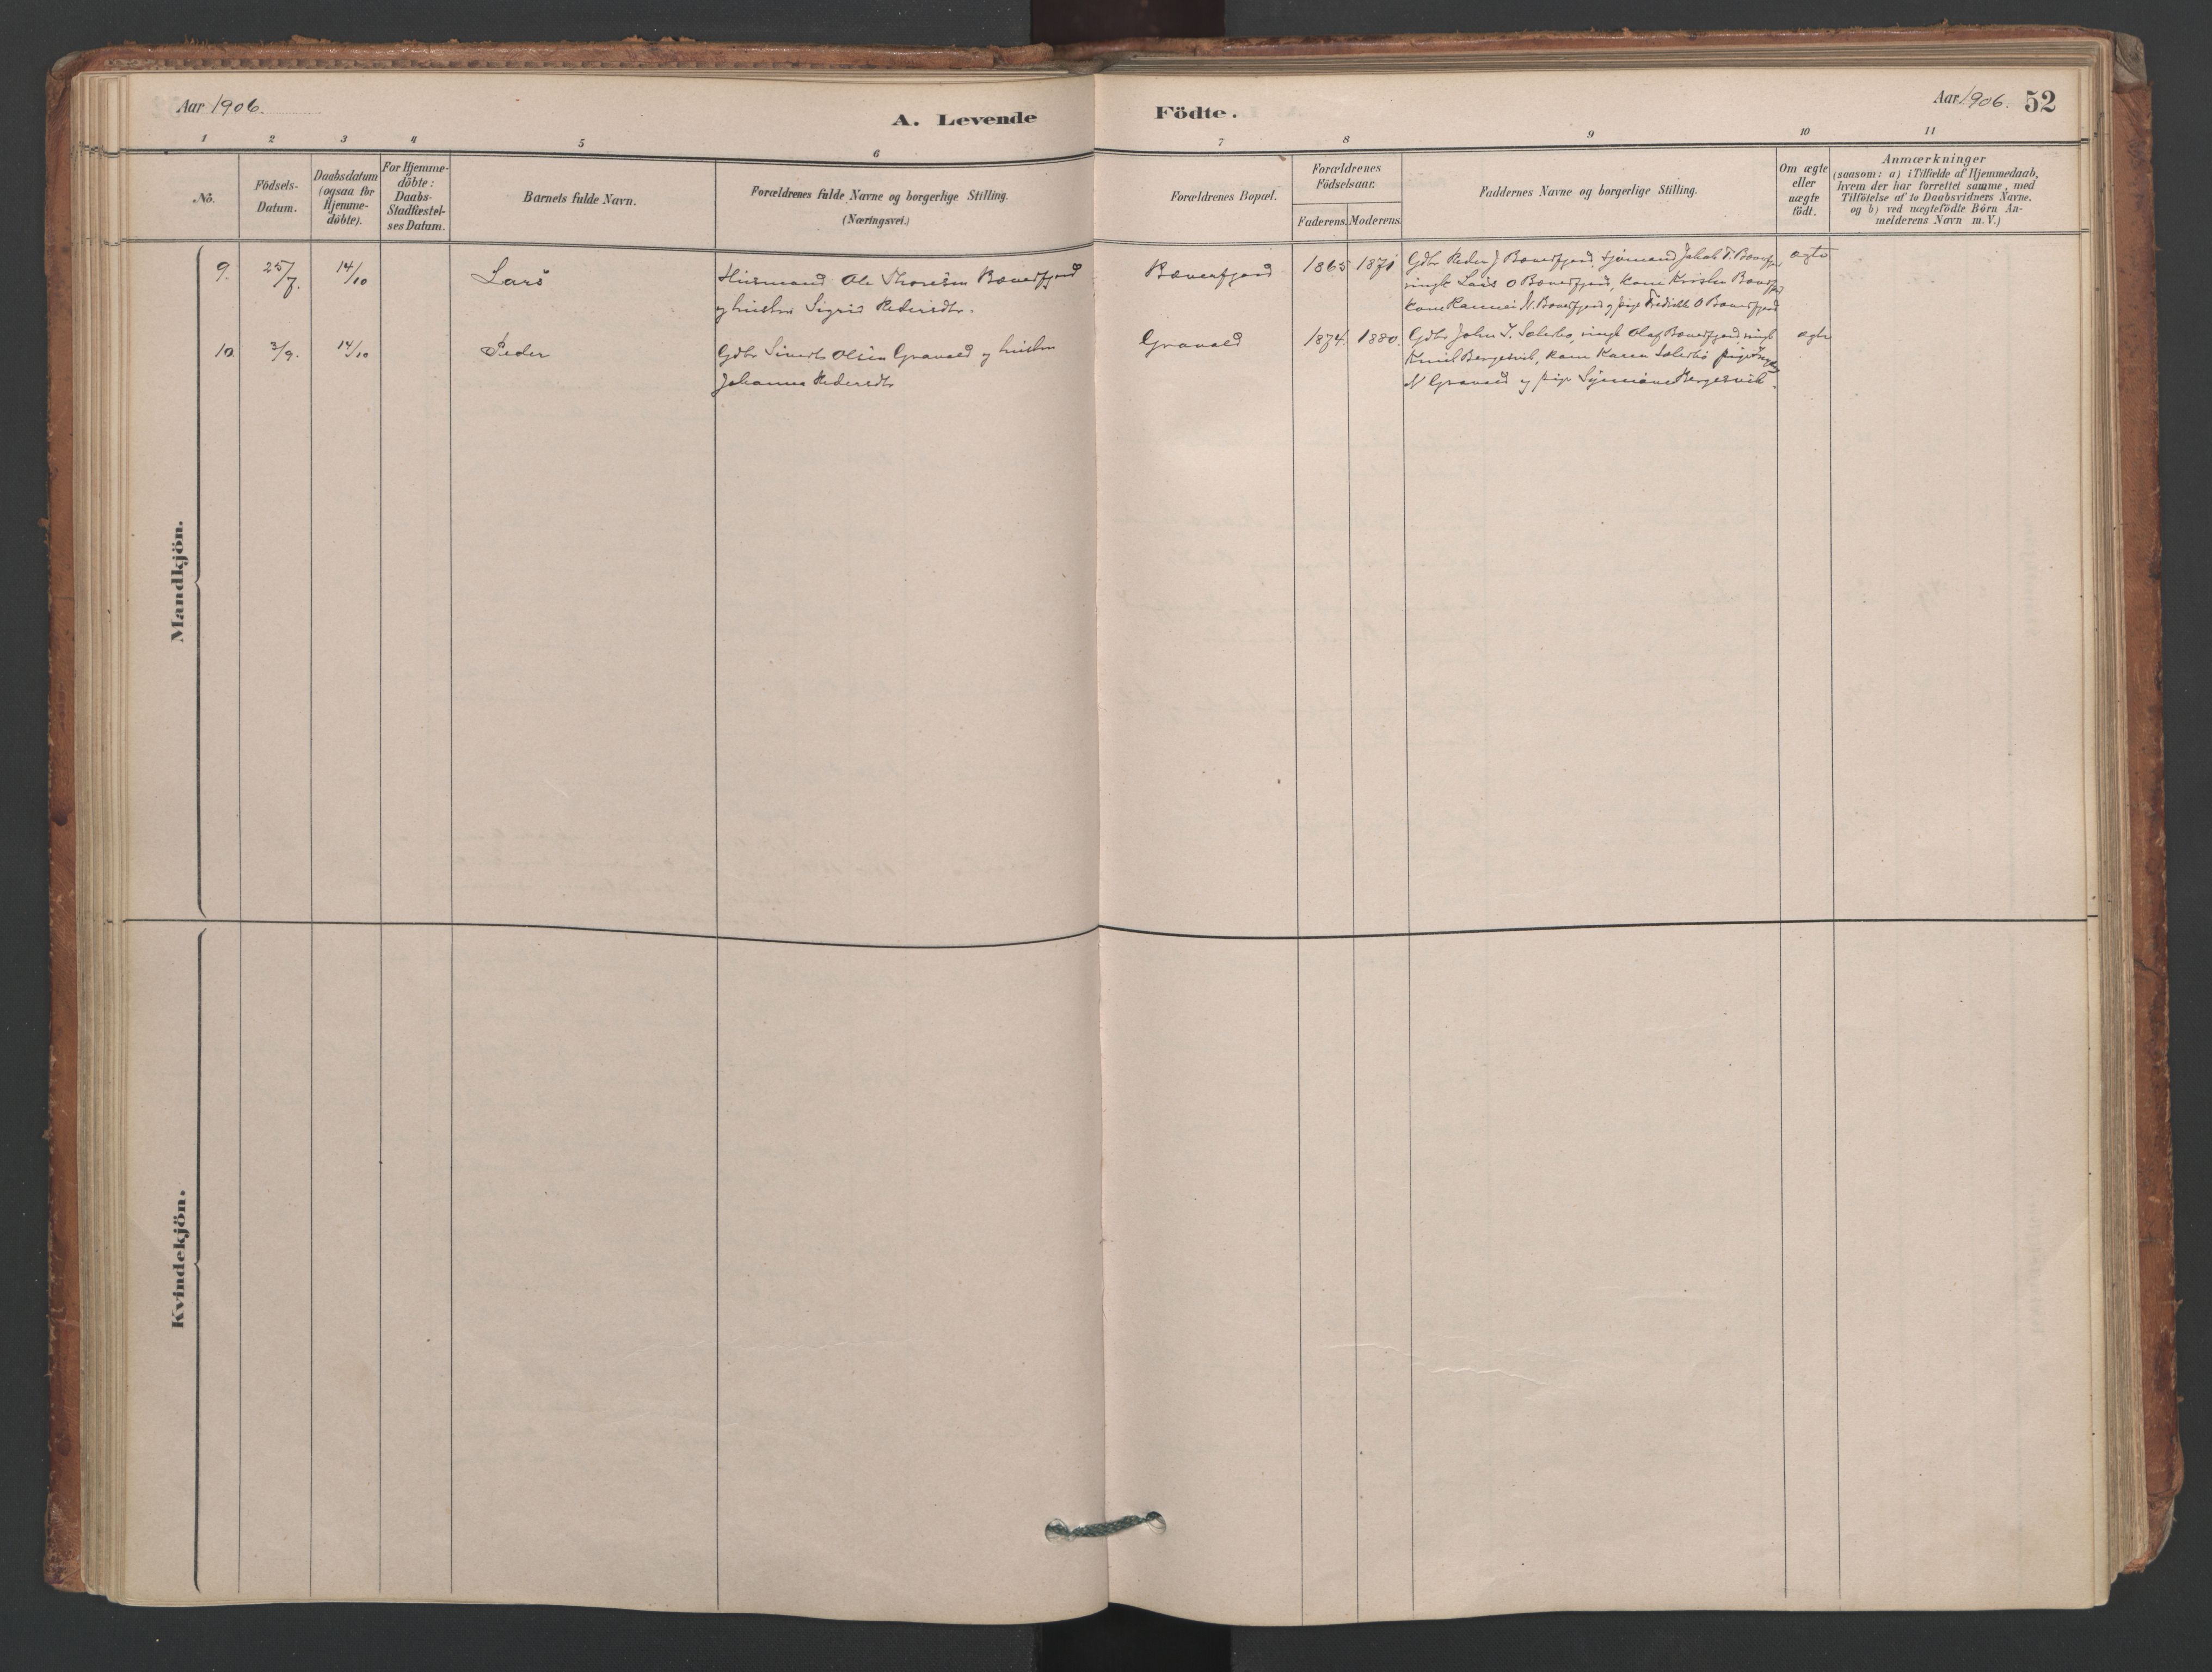 Aar 1906.
A. Levende
Födte.
Aar 1906. 52
1 2 3 4 5 6 7 8 9 10 11
No.
Födsels-
Datum.
Daabsdatum
(ogsaa for
Hjemme-
döbte).
For Hjemme-
döbte:
Daabs-
Stadfæstel-
ses Datum.
Barnets fulde Navn.
Forældrenes fulde Navne og borgerlige Stilling.
(Næringsvei.)
Forældrenes Bopæl.
Forældrenes
Födselsaar.
Faderens. Moderens.
Faddernes Navne og borgerlige Stilling.
Om ægte
eller
uægte
födt.
Anmærkninger
(saasom: a) i Tilfælde af Hjemmedaab,
hvem der har forrettet samme, med
Tilföielse af to Daabsvidners Navne.
og b) ved uægtefödte Börn An-
melderens Navn m. V.)
Mandkjön.
9. 25/7. 14/10 Lars
Husmand Ole Thoresen Bæverfjord
og hustru Sigrid Pedersdtr.
Bæverfjord 1865 1871
Gdbr Peder J Bæverfjord, Sjömand Jakob T. Bæverfj
ungk Lars O Bæverfjord, kone Bæverfj
kone M. Bæverfjord og pige O Bæverfjord
ægte
10. 3/9. 14/10 Peder
Gdbr Sivert Olsen Gravald og hustru
Johanna Pedersdtr
Gravald 1874. 1880.
Gdbr John I. Sæterbö, ungk Olaf Bæverfjord, ungk
Bergesvik, kone Karen Sæterbö pige
N Gravald og pige Bergesvik.
ægte
Kvindekjön.